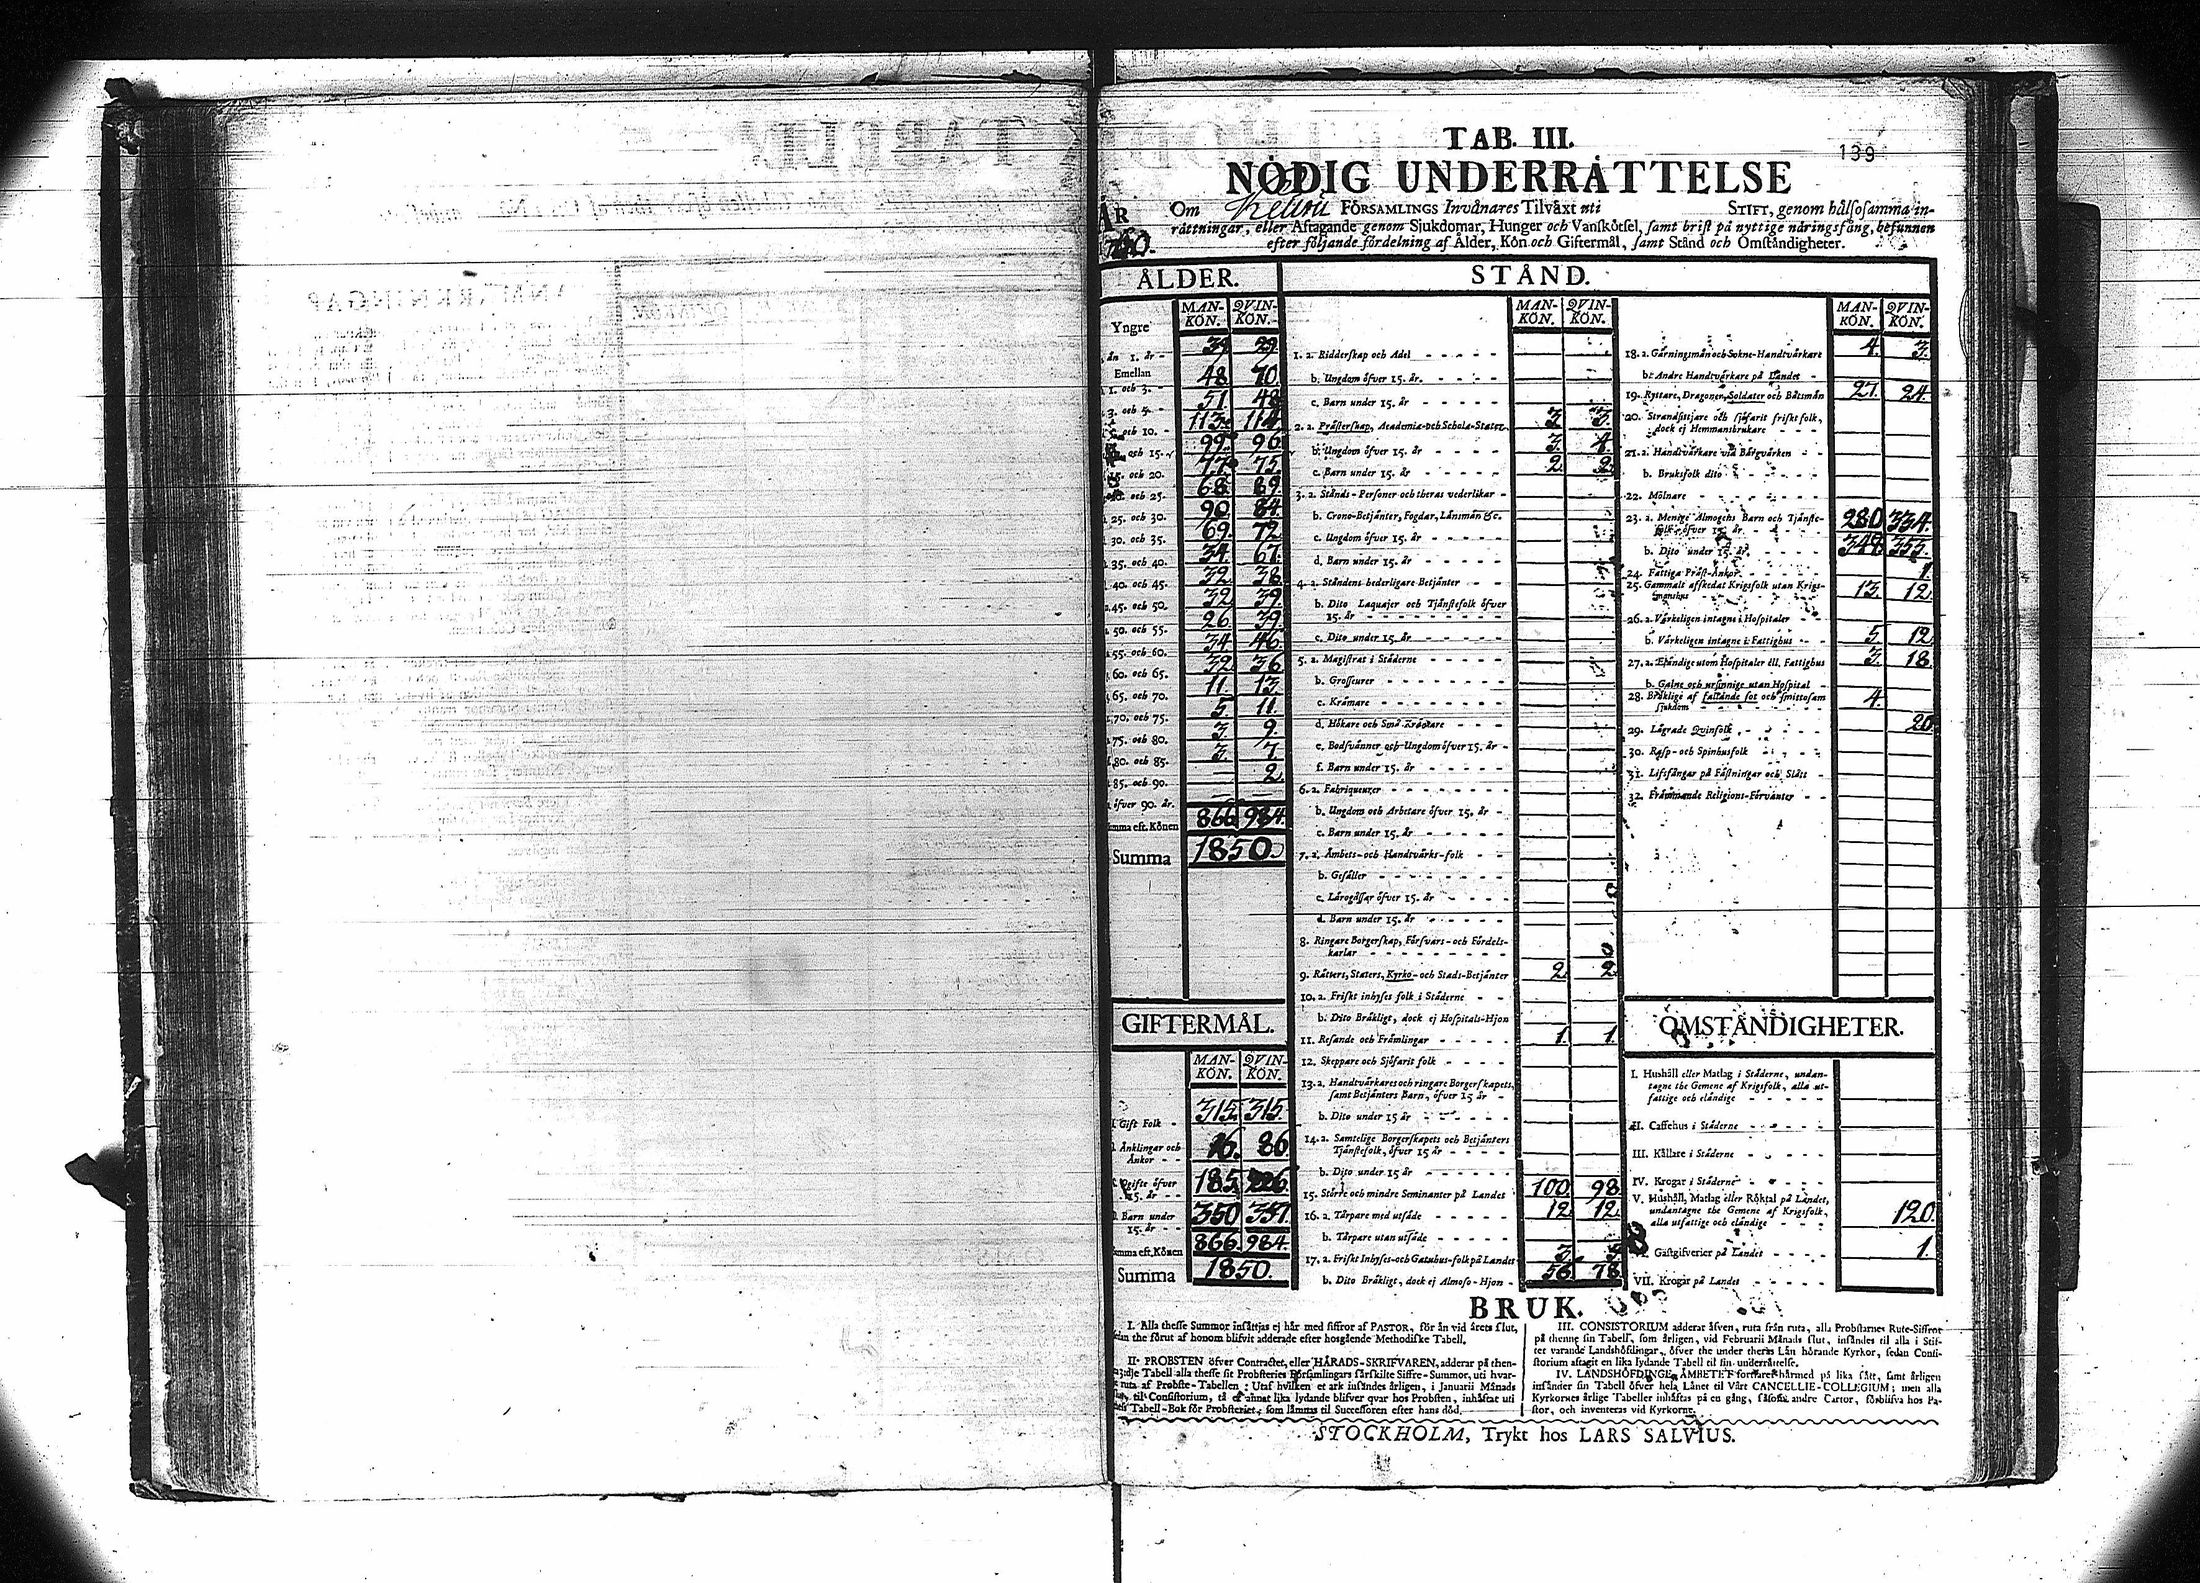 139
TAB. III.
NÖDIG UNDERRÅTTELSE
ÅR
Om FÖRSAMLINGS Invånares Tilvåxt uti STIFT, genom hålsosamma in-
råttningar, eller Aftagande genom Sjukdomar, Hunger och Vanskötsel, samt brist på nyttige nåringsfång, befunnen
efter följande fördelning af Ålder, Kön och Giftermål, samt Stånd och Omståndigheter.
ÅLDER.
MAN-KÖN. QVIN-KÖN.
Yngre
än 1. år - 39 29.
Emellan
1. och 3. - 48 70.
3. och 5. - 51 48
och 10. - 113. 114
och 15. 99. 96
15. och 20. 77. 75
och 25. 68. 89.
25. och 30. 90 84.
30. och 35. 69. 72
35. och 40. 34. 67.
40. och 45. 32 38.
45. och 50. 32 39.
50. och 55. 26 39.
55. och 60. 34 46.
60. och 65. 32 36.
65. och 70. 11. 13.
70. och 75. 5. 11.
75. och 80. 3. 9.
80. och 85. 3. 7.
85. och 90. — 2
öfver 90. år. — —
Summa eft. Könen 866. 984.
Summa 1850.
GIFTERMÅL.
MAN-KÖN. QVIN-KÖN.
Gift Folk - 315. 315.
Änklingar och
Änkor - - 16. 86
Ogifte öfver
15. år - - 185. 226.
Barn under
15. år - - 350 357.
Summa eft. Könen 866. 984.
Summa 1850.
STÅND.
MAN-KÖN. QVIN-KÖN.
1. a. Ridderskap och Adel
b. Ungdom öfver 15. år.
c. Barn under 15. år
2. a. Prästerskap, Academiæ- och Schola-Stater 3 3.
b. Ungdom öfver 15. år 3. 4.
c. Barn under 15. år 2. 2.
3. a. Stånds-Personer och theras vederlikar
b. Crono-Betjänter, Fogdar, Länsmän &c.
c. Ungdom öfver 15. år
d. Barn under 15. år
4. a. Ståndens hederligare Betjänter
b. Dito Laquajer och Tjänstefolk öfver
15. år
c. Dito under 15. år
5. a. Magistrat i Ståderne
b. Grosseurer
c. Krämare
d. Hökare och Små Krämare
e. Bodsvänner och Ungdom öfver 15. år
f. Barn under 15. år
6. a. Fabriqueurer
b. Ungdom och Arbetare öfver 15. år
c. Barn under 15. år
7. a. Ämbets- och Handtvårks-folk
b. Gesäller
c. Lärogåssar öfver 15. år
d. Barn under 15. år
8. Ringare Borgerskap, Försvars- och Fördels-
karlar
9. Råtters, Staters, Kyrko- och Stads-Betjänter 2. 2.
10. a. Friskt inhyses folk i Ståderne
b. Dito Bräkligt, dock ej Hospitals-Hjon
11. Resande och Främlingar 1. 1.
12. Skeppare och Sjöfarit folk
13. a. Handtvårkares och ringare Borgerskapets,
samt Betjänters Barn, öfver 15 år
b. Dito under 15 år
14. a. Samtelige Borgerskapets och Betjänters
Tjänstefolk, öfver 15 år
b. Dito under 15 år
15. Större och mindre Heminanter på Landet 100. 98.
16. a. Tårpare med utsåde 12. 12.
b. Tårpare utan utsåde
17. a. Friskt Inhyses- och Gatuhus-folk på Landet 3. 5.
b. Dito Bräkligt, dock ej Almoso-Hjon 56. 78.
MAN-KÖN. QVIN-KÖN.
18. a. Gärningsmän och Sokne-Handtvårkare 4. 3.
b. Andre Handtvårkare på Landet
19. Ryttare, Dragoner, Soldater och Båtsmän 27. 24.
20. Strandsittjare och sjöfarit friskt folk,
dock ej Hemmansbrukare
21. a. Handtvårkare vid Bårgvårken
b. Bruksfolk dito
22. Mölnare
23. a. Menige Almogens Barn och Tjänste-
folk, öfver 15. år 280 334.
b. Dito under 15. år 348. 353.
24. Fattiga Präst-Änkor 1.
25. Gammalt affskedat Krigsfolk utan Krigs-
mannahus 13. 12.
26. a. Vårkeligen intagne i Hospitaler
b. Vårkeligen intagne i Fattighus 5. 12.
27. a. Eländige utom Hospitaler ell. Fattighus 3. 18.
b. Galne och ursinnige utan Hospital
28. Bräklige af fallande sot och smittosam
sjukdom 4.
29. Lägrade Qvinfolk 20.
30. Rasp- och Spinhusfolk
31. Lifsfångar på Fästningar och Slått
32. Främmande Religions-Förvanter
OMSTÄNDIGHETER.
I. Hushåll eller Matlag i Ståderne, undan-
tagne the Gemene af Krigsfolk, alla ut-
fattige och eländige
II. Caffehus i Ståderne
III. Källare i Ståderne
IV. Krogar i Ståderne
V. Hushåll, Matlag eller Röktal på Landet,
undantagne the Gemene af Krigsfolk,
alla utfattige och eländige 120.
Gästgifverier på Landet 1.
VII. Krogar på Landet
BRUK.
I. Alla thesse Summor insättjas ej här med siffror af PASTOR, för än vid årets slut,
sedan the förut af honom blifvit adderade efter hosgående Methodiske Tabell.
II. PROBSTEN öfver Contractet, eller HÄRADS-SKRIFVAREN, adderar på then-
Tabell alla thesse sit Probsteries Församlingars särskilte Siffre-Summor, uti hvar-
ruta af Probste-Tabellen: Utaf hvilken et ark insändes årligen, i Januarii Månads
slut, til Consistorium, tå et annat lika lydande blifver qvar hos Probsten, inhäftat uti
Tabell-Bok för Probsteriet, som lämnas til Successoren efter hans död.
III. CONSISTORIUM adderar äfven, ruta från ruta, alla Probstarnes Rute-Siffror
på thenne sin Tabell, som årligen, vid Februarii Månads slut, insändes til alla i Stif-
tet varande Landshöfdingar, öfver the under theras Län hörande Kyrkor, sedan Consi-
storium aftagit en lika lydande Tabell til sin underrättelse.
IV. LANDSHÖFDINGE ÄMBETET fortfare härmed på lika sätt, samt årligen
insänder sin Tabell öfver hela Länet til Vårt CANCELLIE-COLLEGIUM; men alla
Kyrkornes årlige Tabeller inhäftas på en gång, såsom andre Cartor, förblifva hos Pa-
stor, och inventeras vid Kyrkorne.
STOCKHOLM, Trykt hos LARS SALVIUS.